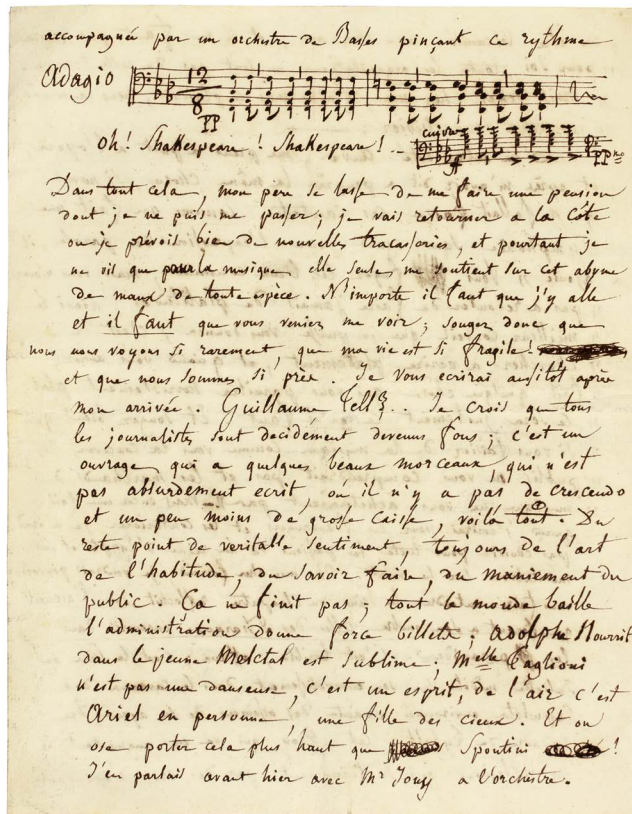 accompagnée par un orchestre de Basses pinçant ce rythme
Adagio 12 8 PP
cuivre ff PP
Oh! Shakespeare! Shakespeare! ..
Dans tout cela, mon père se lasse de me faire une pension
dont je ne puis me passer; je vais retourner a la Côte
ou je prévois bien de nouvelles tracasseries, et pourtant je
ne vis que pour la musique, elle seule me soutient sur cet abyme
de maux de toute espèce. N'importe il faut que j'y aille
et il faut que vous veniez me voir; songez donc que
nous nous voyons si rarement, que ma vie est si fragile!
et que nous sommes si près. Je vous ecrirai aussitôt après
mon arrivée. Guillaume Tell?.. Je crois que tous
les journalistes sont decidément devenus fous; c'est un
ouvrage qui a quelques beaux morceaux, qui n'est
pas absurdement ecrit, où il n'y a pas de crescendo
et un peu moins de grosse caisse, voilà tout. Du
reste point de veritable sentiment, toujours de l'art
de l'habitude, du savoir faire, du maniement du
public. Ca ne finit pas; tout le monde baille
l'administration donne force billets; Adolphe Nourrit
dans le jeune Melctal est sublime; Melle Taglioni
n'est pas une danseuse, c'est un esprit, de l'air c'est
Ariel en personne, une fille des cieux. Et on
ose porter cela plus haut que Spontini!
J'en parlais avant hier avec Mr Jouy a l'orchestre.